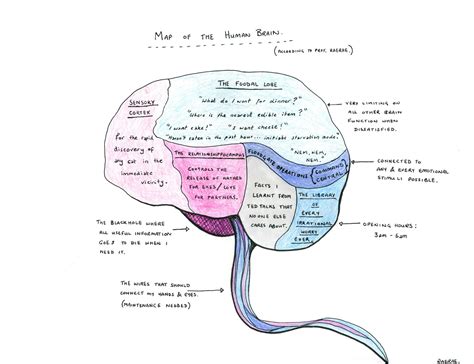 MAP OF THE HUMAN BRAIN.
(ACCORDING TO PROF.
THE FOODAL LOBE
"What do I want for dinner?"
"Where is the nearest edible item?"
"I want cake!"
"I want cheese!"
"Haven't eaten in the past hour... initiate starvation mode"
"NEM, NEM,
NEM."
SENSORY
CORTEX
For the rapid
discovery of
any cat in the
immediate
vicinity.
VERY LIMITING ON
ALL OTHER BRAIN
FUNCTION WHEN
DISSATISFIED.
THE RELATIONSHIPPOCAMPUS
CONTROLS THE
RELEASE OF HATRED
FOR EXES / LOVE
FOR PARTNERS.
FLOODGATE OPERATIONS (COMMAND
CENTRAL)
CONNECTED TO
ANY & EVERY EMOTIONAL
STIMULI POSSIBLE.
FACTS I
LEARNT FROM
TED TALKS THAT
NO ONE ELSE
CARES ABOUT.
THE LIBRARY
OF
EVERY
IRRATIONAL
WORRY
EVER.
OPENING HOURS:
3am - 5am
THE BLACKHOLE WHERE
ALL USEFUL INFORMATION
GOES TO DIE WHEN I
NEED IT.
THE WIRES THAT SHOULD
CONNECT MY HANDS & EYES.
(MAINTENANCE NEEDED)